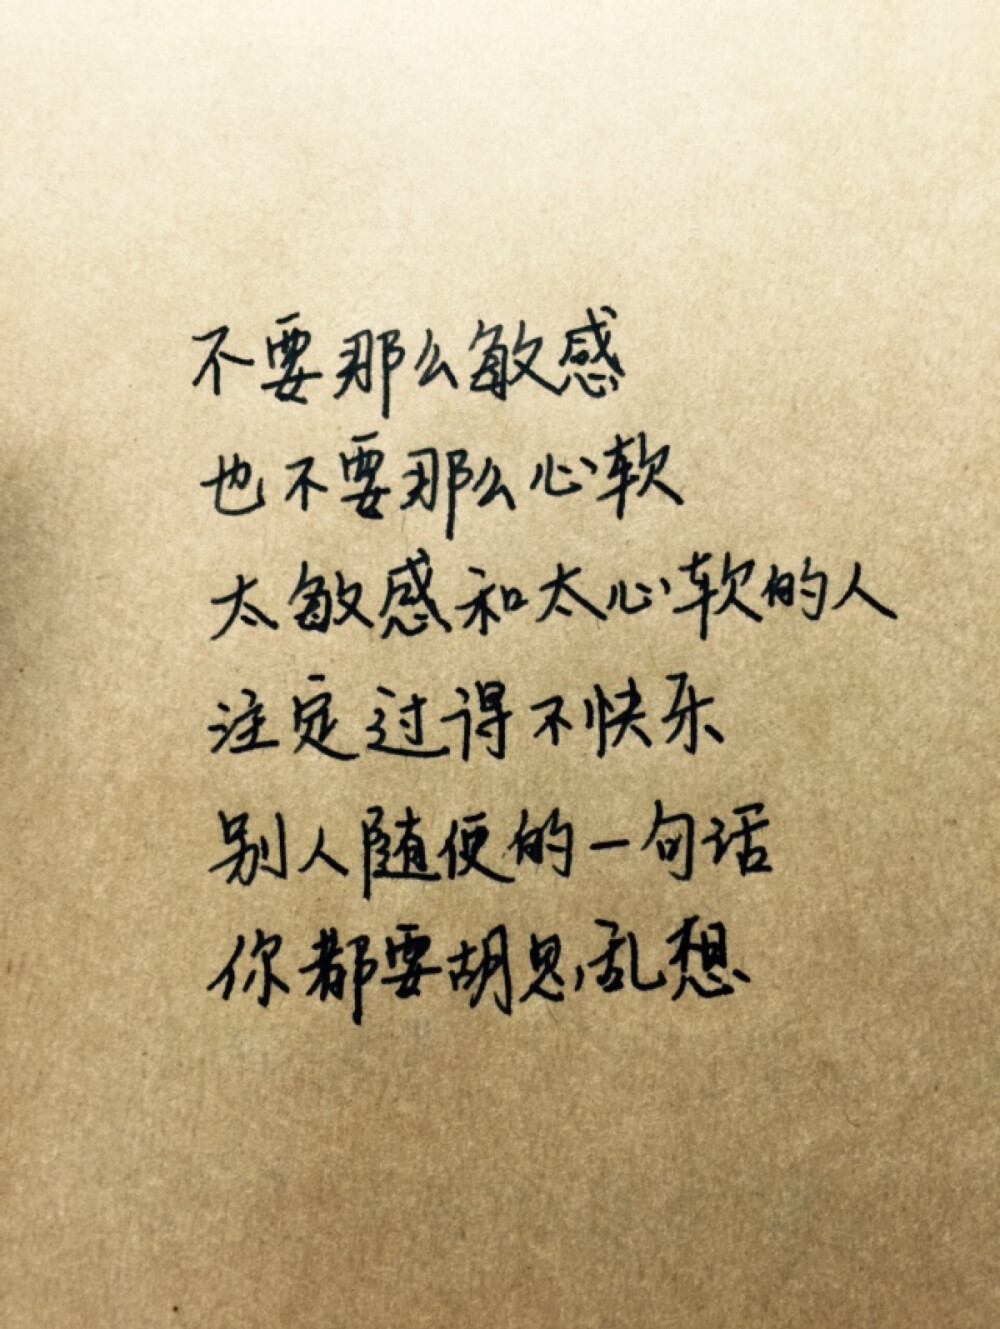 不要那么敏感
也不要那么心软
太敏感和太心软的人
注定过得不快乐
别人随便的一句话
你都要胡思乱想